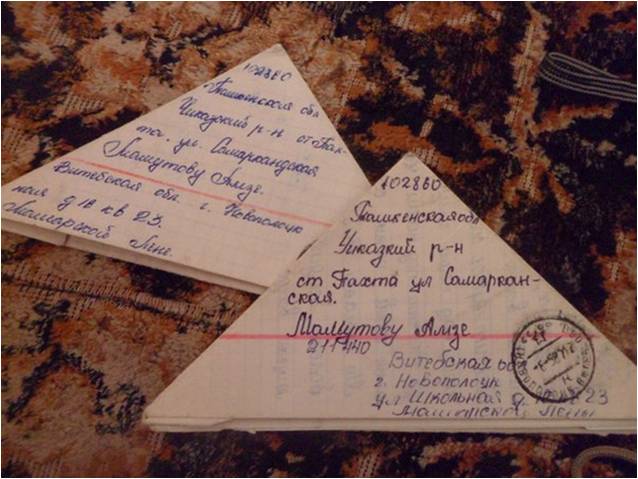 102860
Ташкенская обл
Чиказкий р-н ст Пах-
та. ул. Самаркандская
Мамутову Амзе.
Витебская обл. г. Новополоцк
ная д 18 кв 23.
102860
Ташкенская обл
Чиказкий р-н
ст Пахта ул Самаркан-
ская.
Мамутову Амзе
211440
Витебская об
г. Новополоцк
ул Школьная д. 23